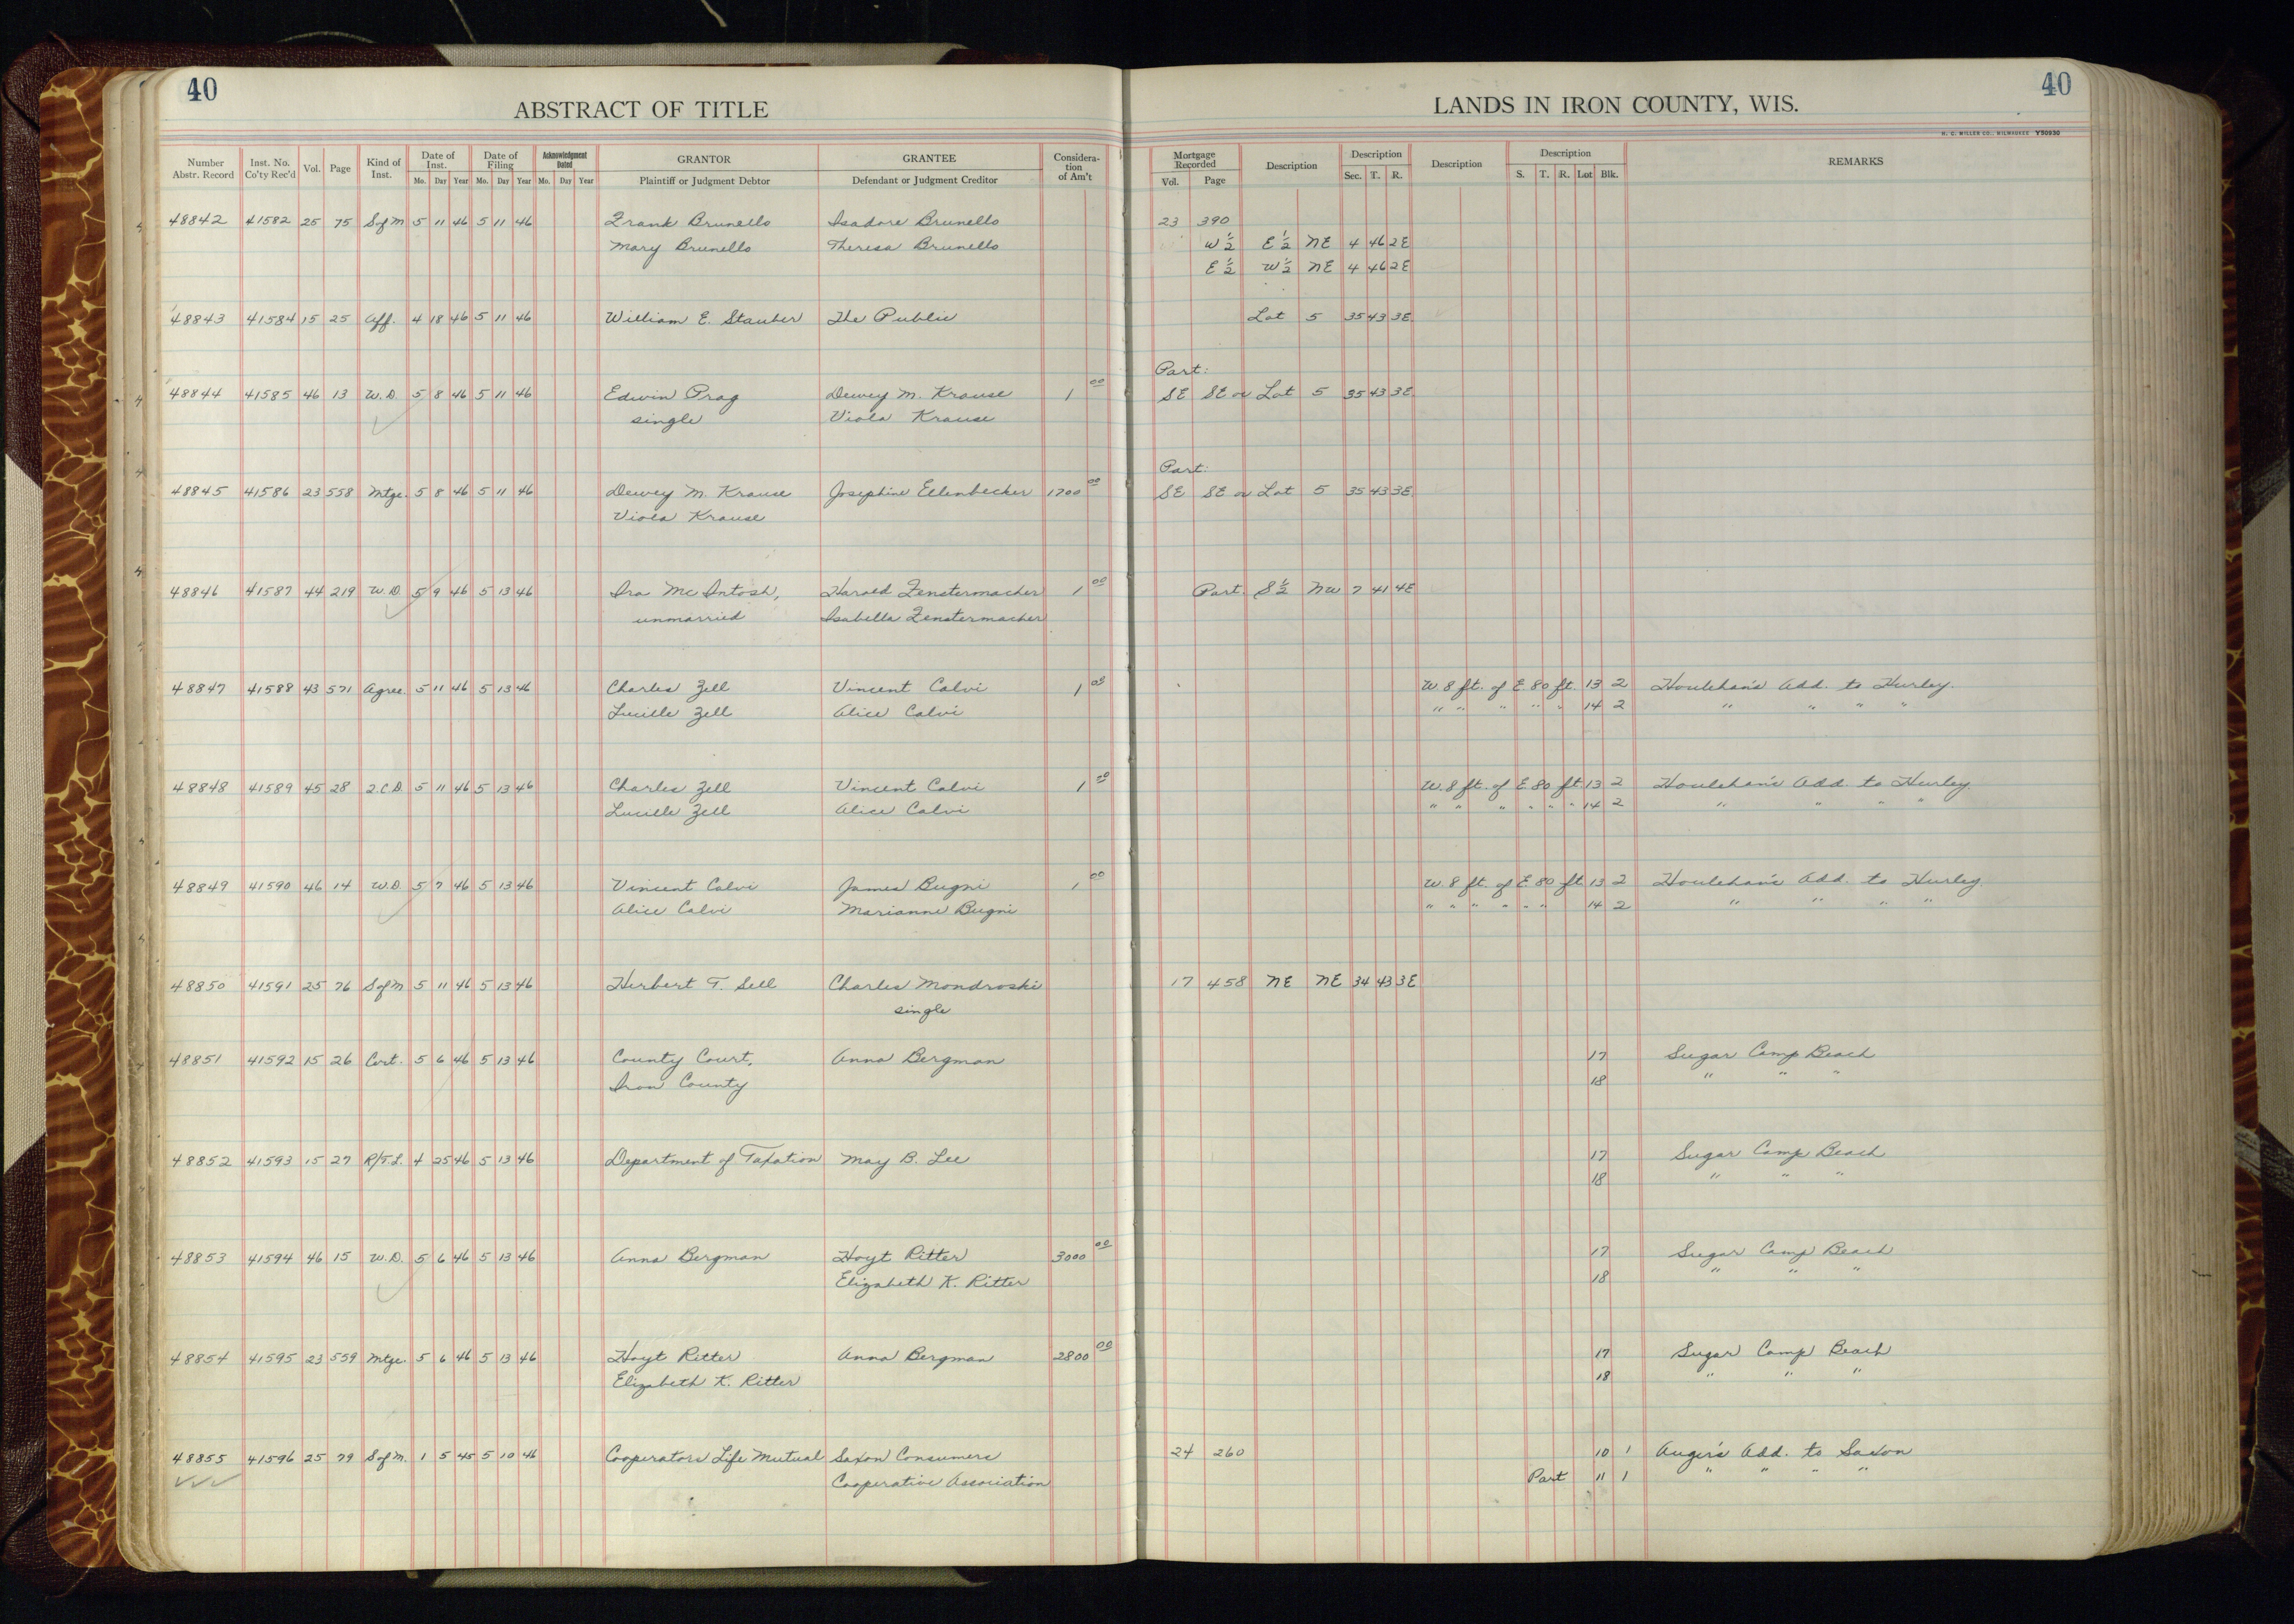 40
40
ABSTRACT OF TITLE
LANDS IN IRON COUNTY, WIS.
H. C. MILLER CO., MILWAUKEE Y50930
Number Abstr. Record Inst. No. Co'ty Rec'd Vol. Page Kind of Inst. Date of Inst. Mo. Day Year Date of Filing Mo. Day Year Acknowledgment Dated Mo. Day Year GRANTOR Plaintiff or Judgment Debtor GRANTEE Defendant or Judgment Creditor Considera-tion of Am't Mortgage Recorded Vol. Page Description Description Sec. T. R. Description Description S. T. R. Lot Blk. REMARKS
48842 41582 25 75 S of M 5 11 46 5 11 46 Frank Brunello Isadore Brunello 23 390
Mary Brunello Theresa Brunello W 1/2 E 1/2 NE 4 46 2E
E 1/2 W 1/2 NE 4 46 2E
48843 41584 15 25 Aff. 4 18 46 5 11 46 William E. Stauber The Public Lot 5 35 43 3E
Part:
48844 41585 46 13 W.D. 5 8 46 5 11 46 Edwin Prag Dewey M. Krause 1 00 SE SE or Lot 5 35 43 3E
single Viola Krause
Part:
48845 41586 23 558 Mtge. 5 8 46 5 11 46 Dewey M. Krause Josephine Ellenbecker 1700 00 SE SE or Lot 5 35 43 3E
Viola Krause
48846 41587 44 219 W.D. 5 9 46 5 13 46 Ira McIntosh, Harold Fenstermacher 1 00 Part. S 1/2 NW 7 41 4E
unmarried Isabella Fenstermacher
48847 41588 43 571 Agree. 5 11 46 5 13 46 Charles Zell Vincent Calvi 1 00 W. 8 ft. of E. 80 ft. 13 2 Houlehan's Add. to Hurley.
Lucille Zell Alice Calvi " " " " " 14 2 " " " "
48848 41589 45 28 Q.C.D. 5 11 46 5 13 46 Charles Zell Vincent Calvi 1 00 W. 8 ft. of E. 80 ft. 13 2 Houlehan's Add. to Hurley.
Lucille Zell Alice Calvi " " " " " " 14 2 " " " "
48849 41590 46 14 W.D. 5 7 46 5 13 46 Vincent Calvi James Bugni 1 00 W. 8 ft. of E. 80 ft. 13 2 Houlehan's Add. to Hurley.
Alice Calvi Marianne Bugni " " " " " " 14 2 " " " "
48850 41591 25 76 S of M 5 11 46 5 13 46 Herbert T. Sell Charles Mondroski 17 458 NE NE 34 43 3E
single
48851 41592 15 26 Cert. 5 6 46 5 13 46 County Court, Anna Bergman 17 Sugar Camp Beach
Iron County 18 " " "
48852 41593 15 27 R/T.L. 4 25 46 5 13 46 Department of Taxation May B. Lee 17 Sugar Camp Beach
18 " " "
48853 41594 46 15 W.D. 5 6 46 5 13 46 Anna Bergman Hoyt Ritter 3000 00 17 Sugar Camp Beach
Elizabeth K. Ritter 18 " " "
48854 41595 23 559 Mtge. 5 6 46 5 13 46 Hoyt Ritter Anna Bergman 2800 00 17 Sugar Camp Beach
Elizabeth K. Ritter 18 " " "
48855 41596 25 79 S of M. 1 5 45 5 10 46 Cooperators Life Mutual Saxon Consumers 24 260 10 1 Auger's Add. to Saxon
Cooperative Association Part 11 1 " " " "